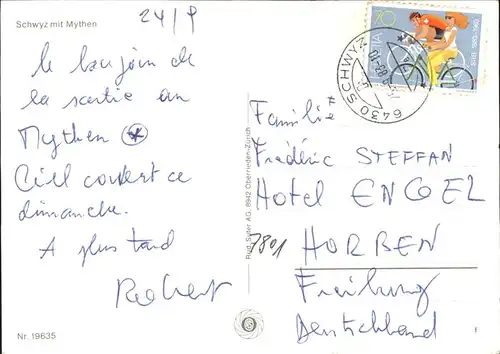 Schwyz mit Mythen
24/9
le bonjour de
la sortie au
Mythen *
Ciel couvert ce
dimanche.
A plus tard
Robert
Nr. 19635
Rud. Suter AG, 8942 Oberrieden-Zürich
70
6430 SCHWYZ
Famille*
Frédéric STEFFAN
Hotel ENGEL
7801 HORBEN
Freiburg
Deutschland